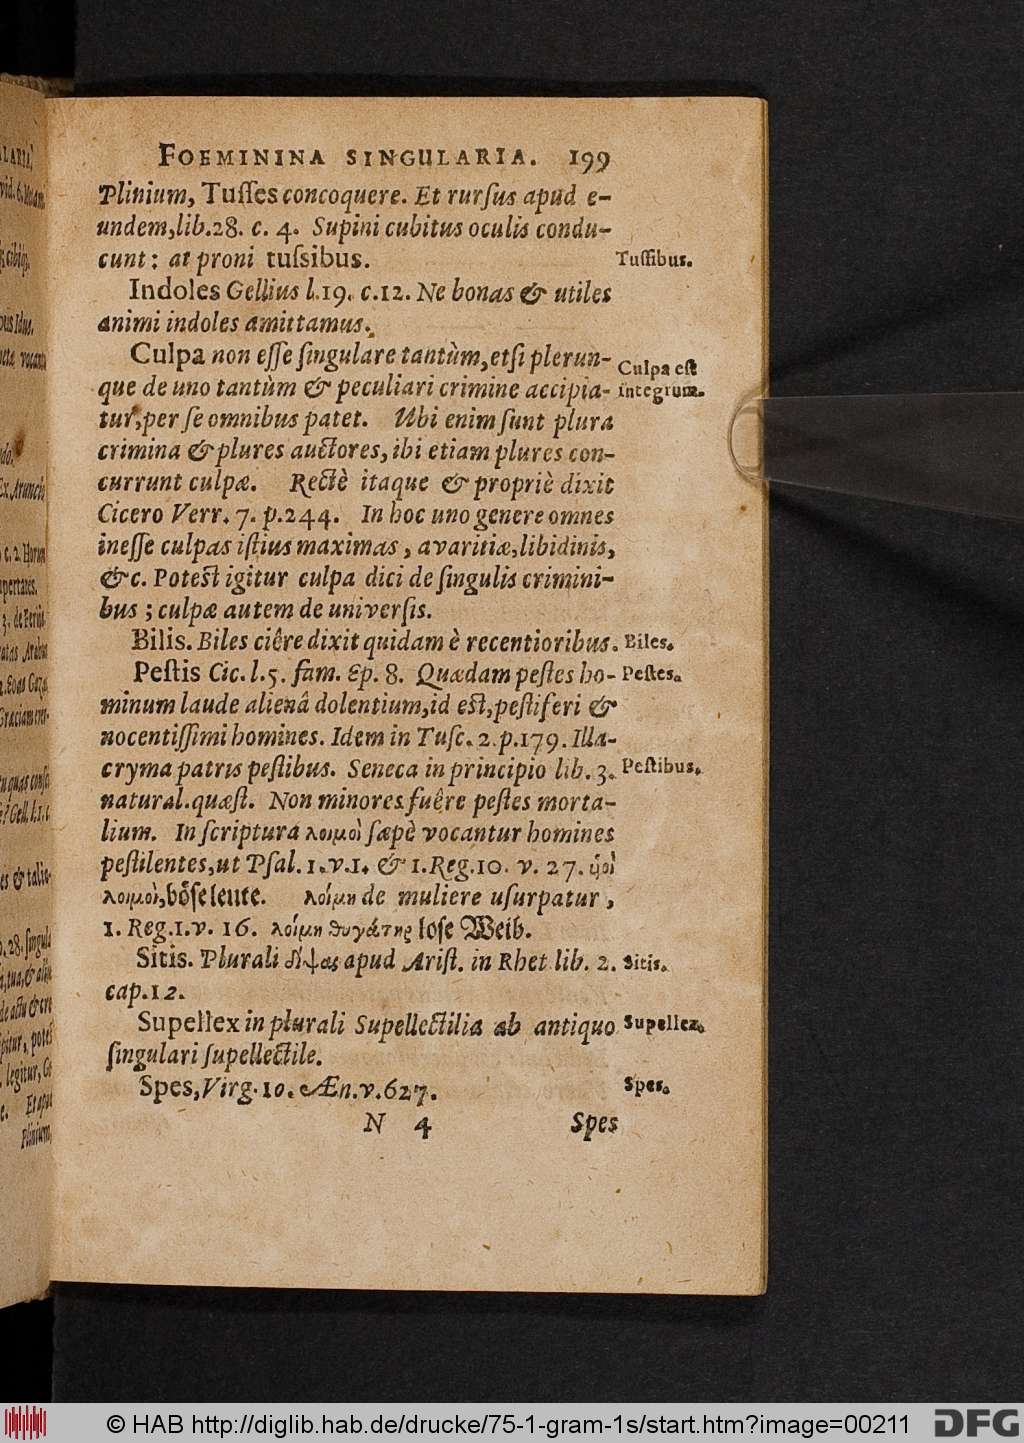 FOEMININA SINGULARIA. 199
Plinium, Tuſſes concoquere. Et rurſus apud e-
undem, lib.28. c. 4. Supini cubitus oculis condu-
cunt: at proni tuſsibus.
Tuſſibus.
Indoles Gellius l.19. c.12. Ne bonas & utiles
animi indoles amittamus.
Culpa non eſſe ſingulare tantùm, etſi plerun-
Culpa eſt
que de uno tantùm & peculiari crimine accipia-
integrum.
tur, per ſe omnibus patet. Ubi enim ſunt plura
crimina & plures auctores, ibi etiam plures con-
currunt culpæ. Rectè itaque & propriè dixit
Cicero Verr. 7. p.244. In hoc uno genere omnes
ineſſe culpas iſtius maximas, avaritiæ, libidinis,
&c. Poteſt igitur culpa dici de ſingulis crimini-
bus; culpæ autem de univerſis.
Bilis. Biles ciêre dixit quidam è recentioribus.
Biles.
Peſtis Cic. l.5. fam. Ep. 8. Quædam peſtes ho-
Peſtes.
minum laude alienâ dolentium, id eſt, peſtiferi &
nocentiſſimi homines. Idem in Tuſc. 2. p.179. Illa-
cryma patris peſtibus. Seneca in principio lib. 3.
Peſtibus.
natural. quæſt. Non minores fuêre peſtes morta-
lium. In ſcriptura λοιμοὶ ſæpè vocantur homines
peſtilentes, ut Pſal. 1. v. 1. & 1. Reg. 10. v. 27. ὑοὶ
λοιμοὶ, böſe leute. λοίμη de muliere uſurpatur,
1. Reg. 1. v. 16. λοίμη θυγάτης loſe Weib.
Sitis. Plurali δίψας apud Ariſt. in Rhet. lib. 2.
Sitis.
cap. 12.
Supellex in plurali Supellectilia ab antiquo
Supellex.
ſingulari ſupellectile.
Spes, Virg. 10. Æn. v. 627.
Spes.
N 4 Spes
© HAB http://diglib.hab.de/drucke/75-1-gram-1s/start.htm?image=00211
DFG